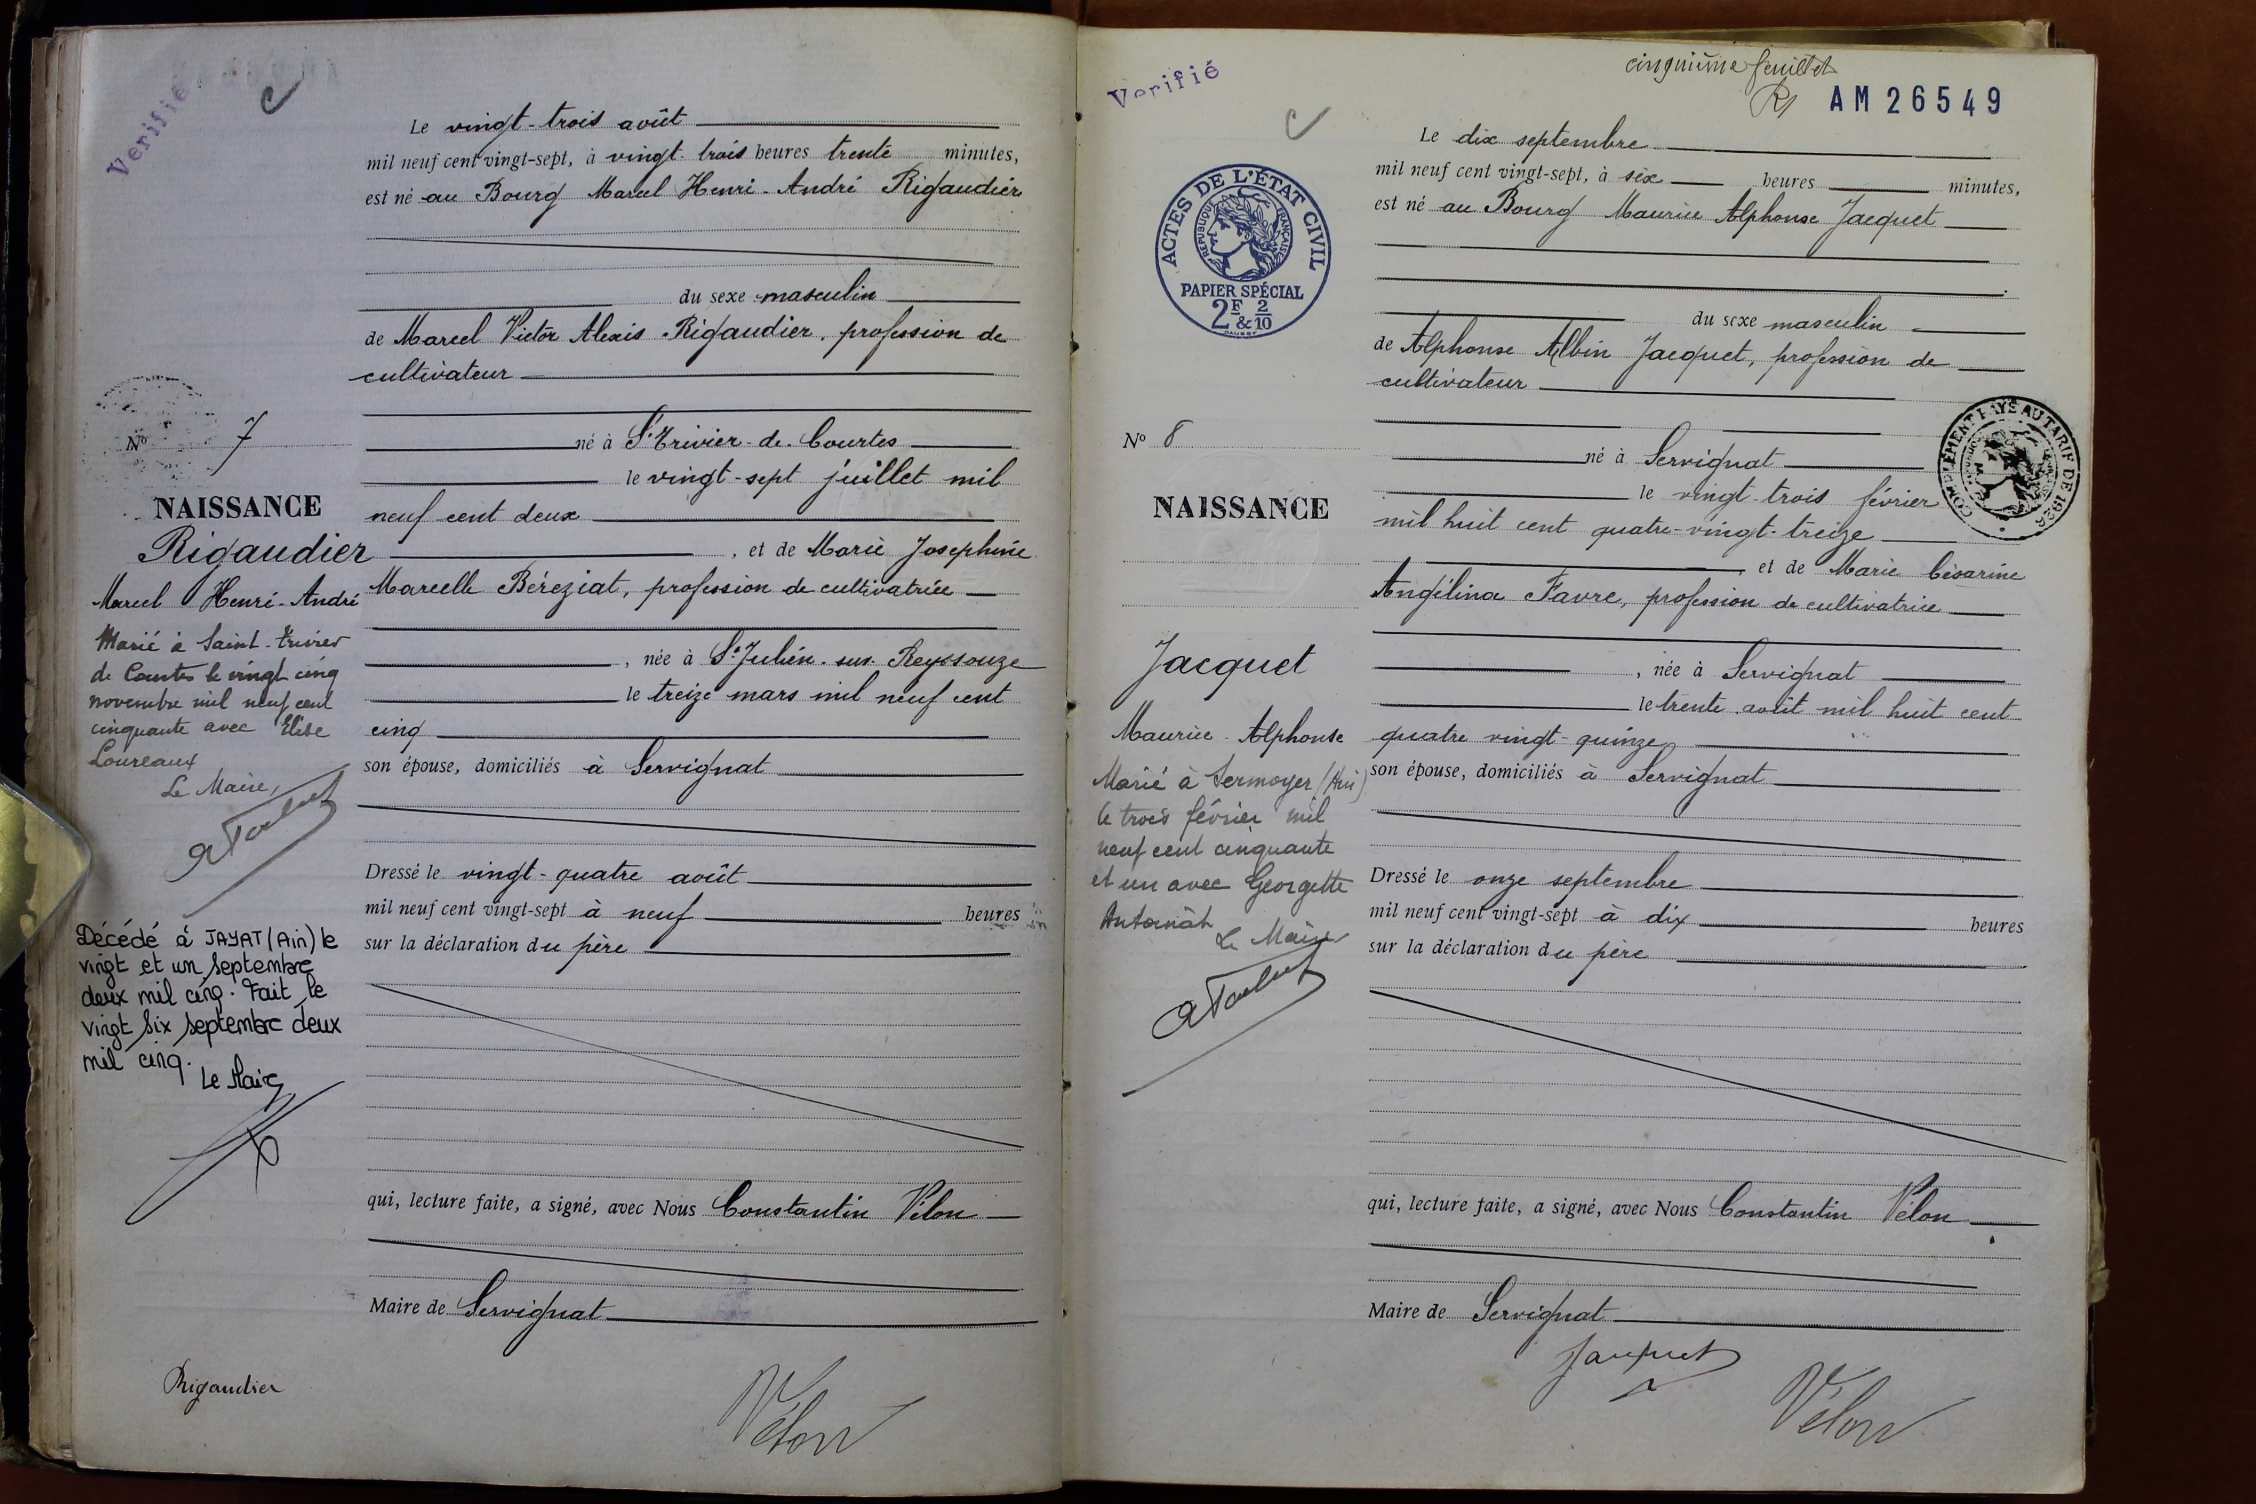 Verifié
Le vingt-trois août
mil neuf cent vingt-sept, à vingt-trois heures trente minutes,
est né au Bourg Marcel Henri-André Rigaudier
du sexe masculin
de Marcel Victor Alexis Rigaudier, profession de
cultivateur
né à St Trivier-de-Courtes
le vingt-sept juillet mil
neuf cent deux
, et de Marie Josephine
Marcelle Béréziat, profession de cultivatrice
, née à St Julien-sur-Reyssouze
le treize mars mil neuf cent
cinq
son épouse, domiciliés à Servignat
Dressé le vingt-quatre août
mil neuf cent vingt-sept à neuf heures
sur la déclaration du père
qui, lecture faite, a signé, avec Nous Constantin Vélon
Maire de Servignat
Rigaudier
Vélon
No 7
NAISSANCE
Rigaudier
Marcel Henri-André
Marié à Saint-Trivier
de Courtes le vingt cinq
novembre mil neuf cent
cinquante avec Elise
Loureaux
Le Maire,
Décédé à JAYAT (Ain) le
vingt et un septembre
deux mil cinq. Fait le
vingt six septembre deux
mil cinq.
Le Maire
Verifié
cinquième feuillet
AM 26549
ACTES DE L'ÉTAT CIVIL
RÉPUBLIQUE FRANÇAISE
PAPIER SPÉCIAL
2F & 2/10
Le dix septembre
mil neuf cent vingt-sept, à six heures minutes,
est né au Bourg Maurice Alphonse Jacquet
du sexe masculin
de Alphonse Albin Jacquet, profession de
cultivateur
COMPLÉMENT PAYÉ AU TARIF DE 1926
né à Servignat
le vingt-trois février
mil huit cent quatre-vingt-treize
, et de Marie Césarine
Angélina Favre, profession de cultivatrice
, née à Servignat
le trente août mil huit cent
quatre vingt-quinze
son épouse, domiciliés à Servignat
Dressé le onze septembre
mil neuf cent vingt-sept à dix heures
sur la déclaration du père
qui, lecture faite, a signé, avec Nous Constantin Vélon
Maire de Servignat
Jacquet
Vélon
No 8
NAISSANCE
Jacquet
Maurice Alphonse
Marié à Sermoyer (Ain)
le trois février mil
neuf cent cinquante
et un avec Georgette
Le Maire